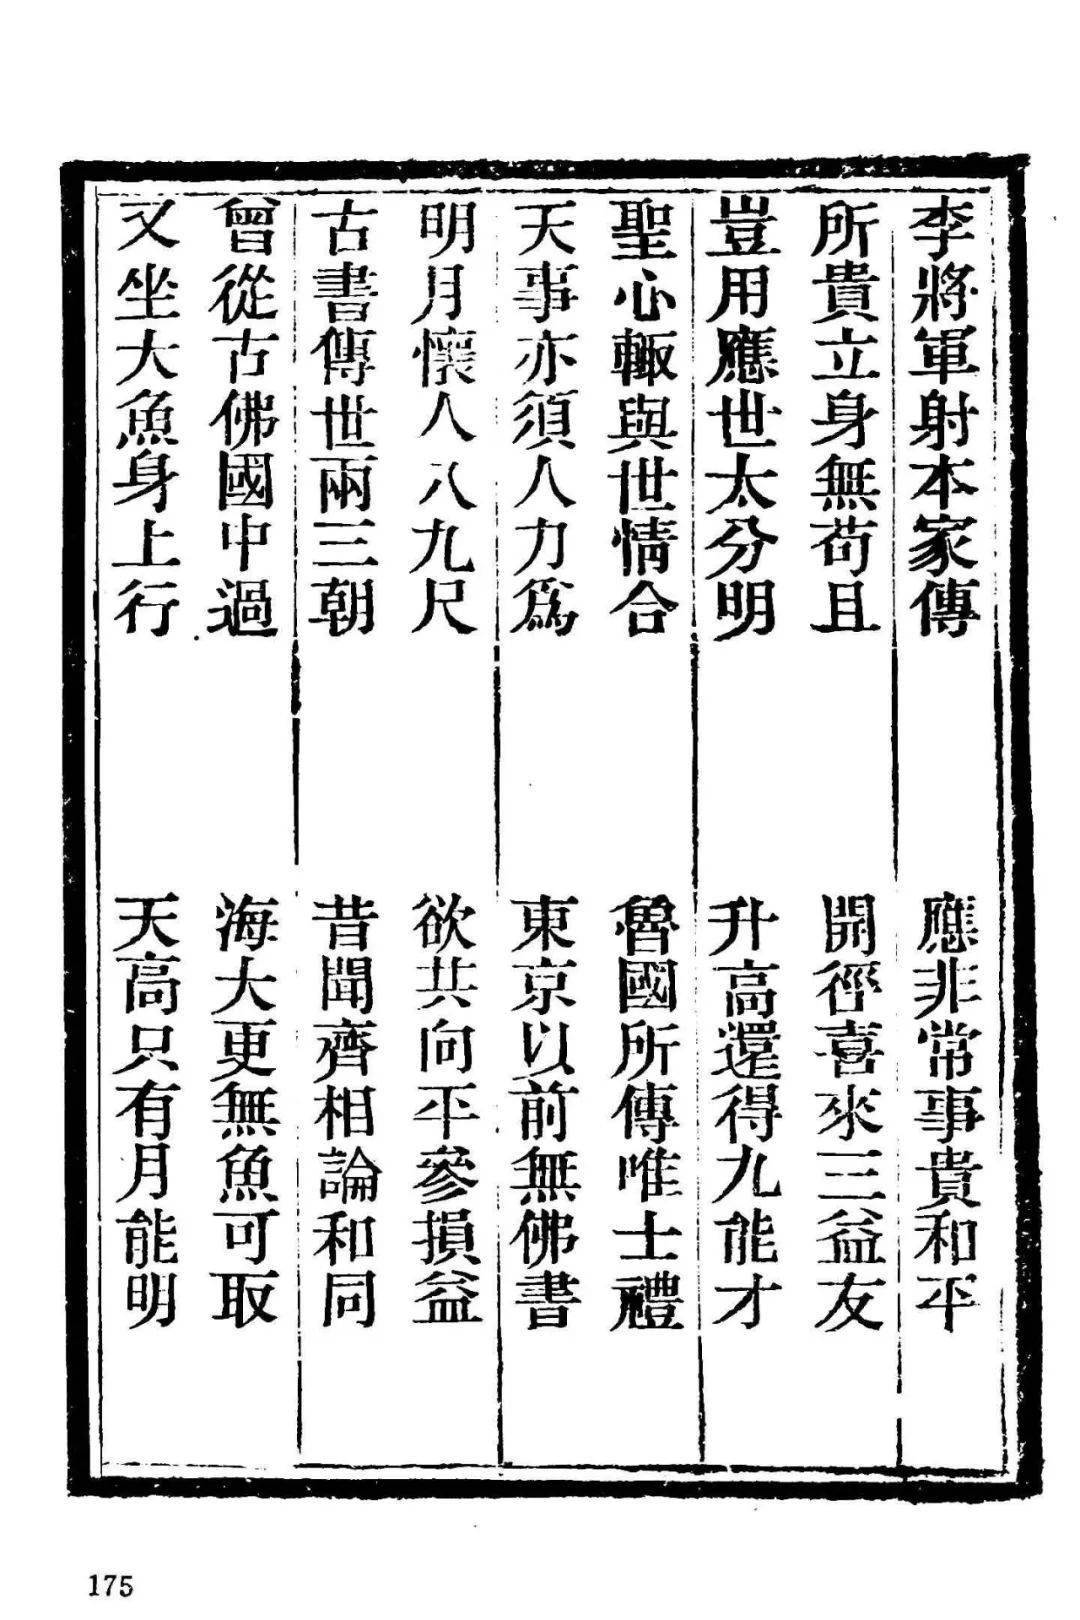 李將軍射本家傳　應非常事貴和平
所貴立身無苟且　開徑喜來三益友
豈用應世太分明　升高還得九能才
聖心輙與世情合　魯國所傳唯士禮
天事亦須人力爲　東京以前無佛書
明月懷人八九尺　欲共向平參損益
古書傳世兩三朝　昔聞齊相論和同
曾從古佛國中過　海大更無魚可取
又坐大魚身上行　天高只有月能明
175